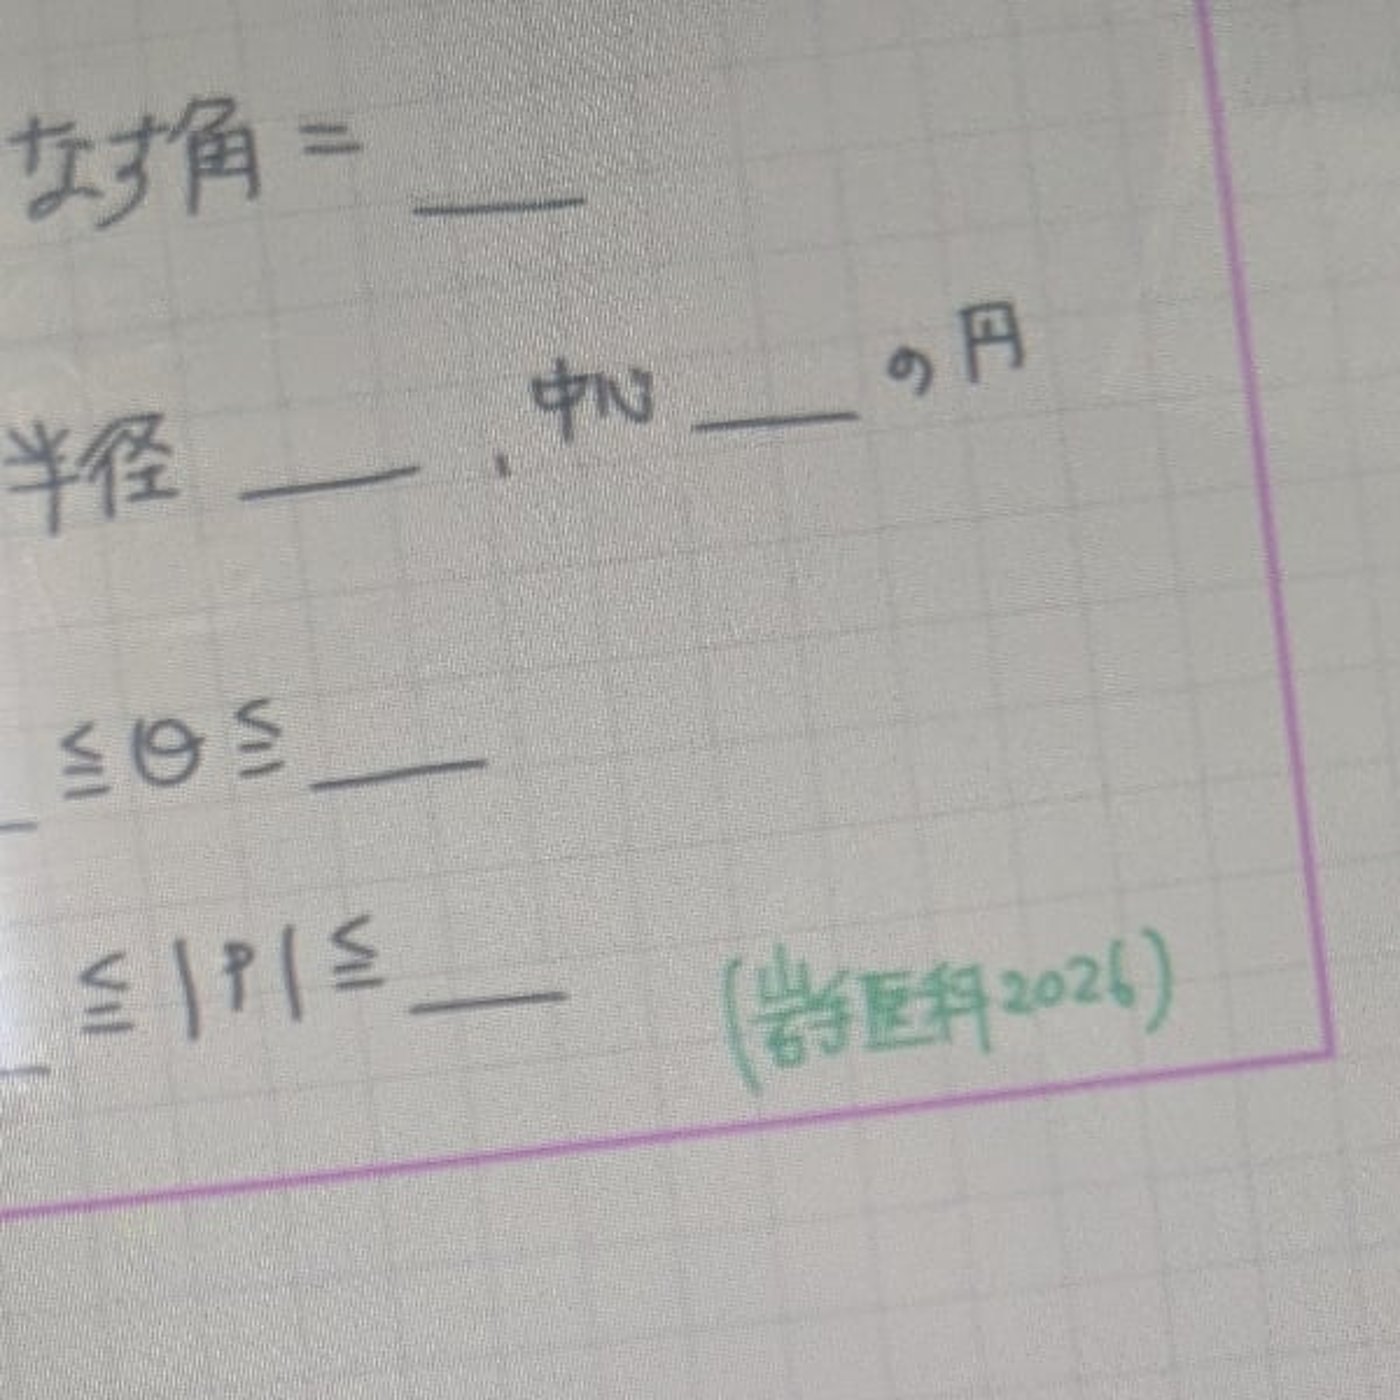 なす角 = ___
半径 ___ , 中心 ___ の円
_ ≦ θ ≦ ___
_ ≦ |P| ≦ ___ (岩手医科2026)